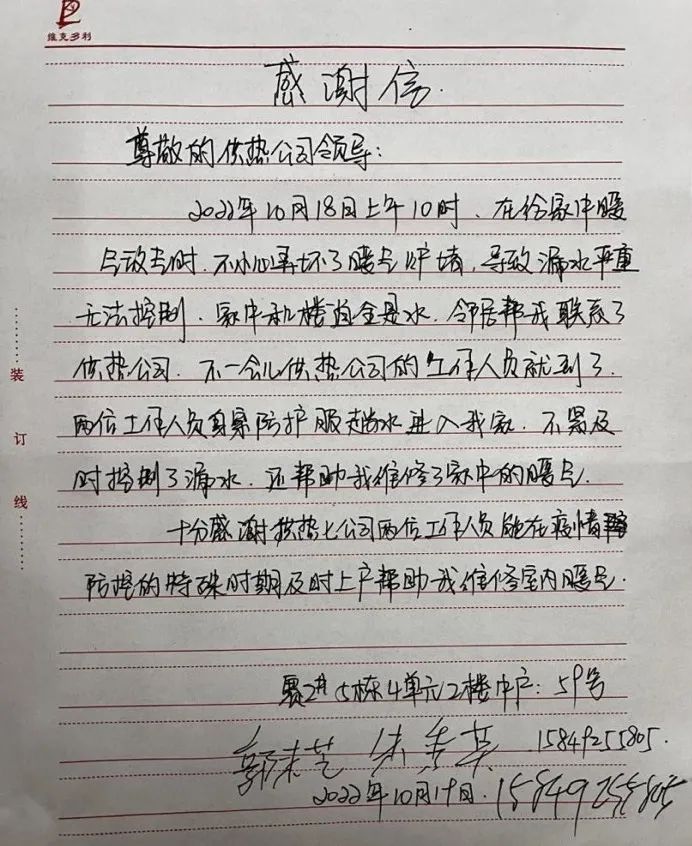 维克多利
感谢信
尊敬的供热公司领导：
2022年10月18日上午10时、在给家中暖
气放气时.不小心弄坏了暖气炉堵，导致漏水严重
无法控制.家中和楼道全是水.邻居帮我联系了
供热公司.不一会儿供热公司的工作人员就到了.
两位工作人员身穿防护服趟水进入我家.不紧及
时控制了漏水.还帮助我维修了家中的暖气.
十分感谢供热七公司两位工作人员能在疫情
防控的特殊时期及时上户帮助我维修室内暖气.
5栋4单元2楼中户：59号
15849255805.
2022年10月19日.15849255805
装
订
线